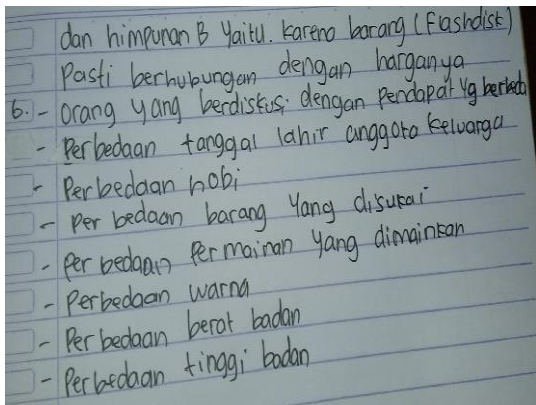 dan himpunan B yaitu. karena barang (Flashdisk)
Pasti berhubungan dengan harganya
6. - orang yang berdiskusi dengan Pendapat yg berbeda
- Perbedaan tanggal lahir anggota keluarga
- Perbedaan hobi
- Perbedaan barang yang disukai
- Perbedaan Permainan yang dimainkan
- Perbedaan warna
- Perbedaan berat badan
- Perbedaan tinggi badan